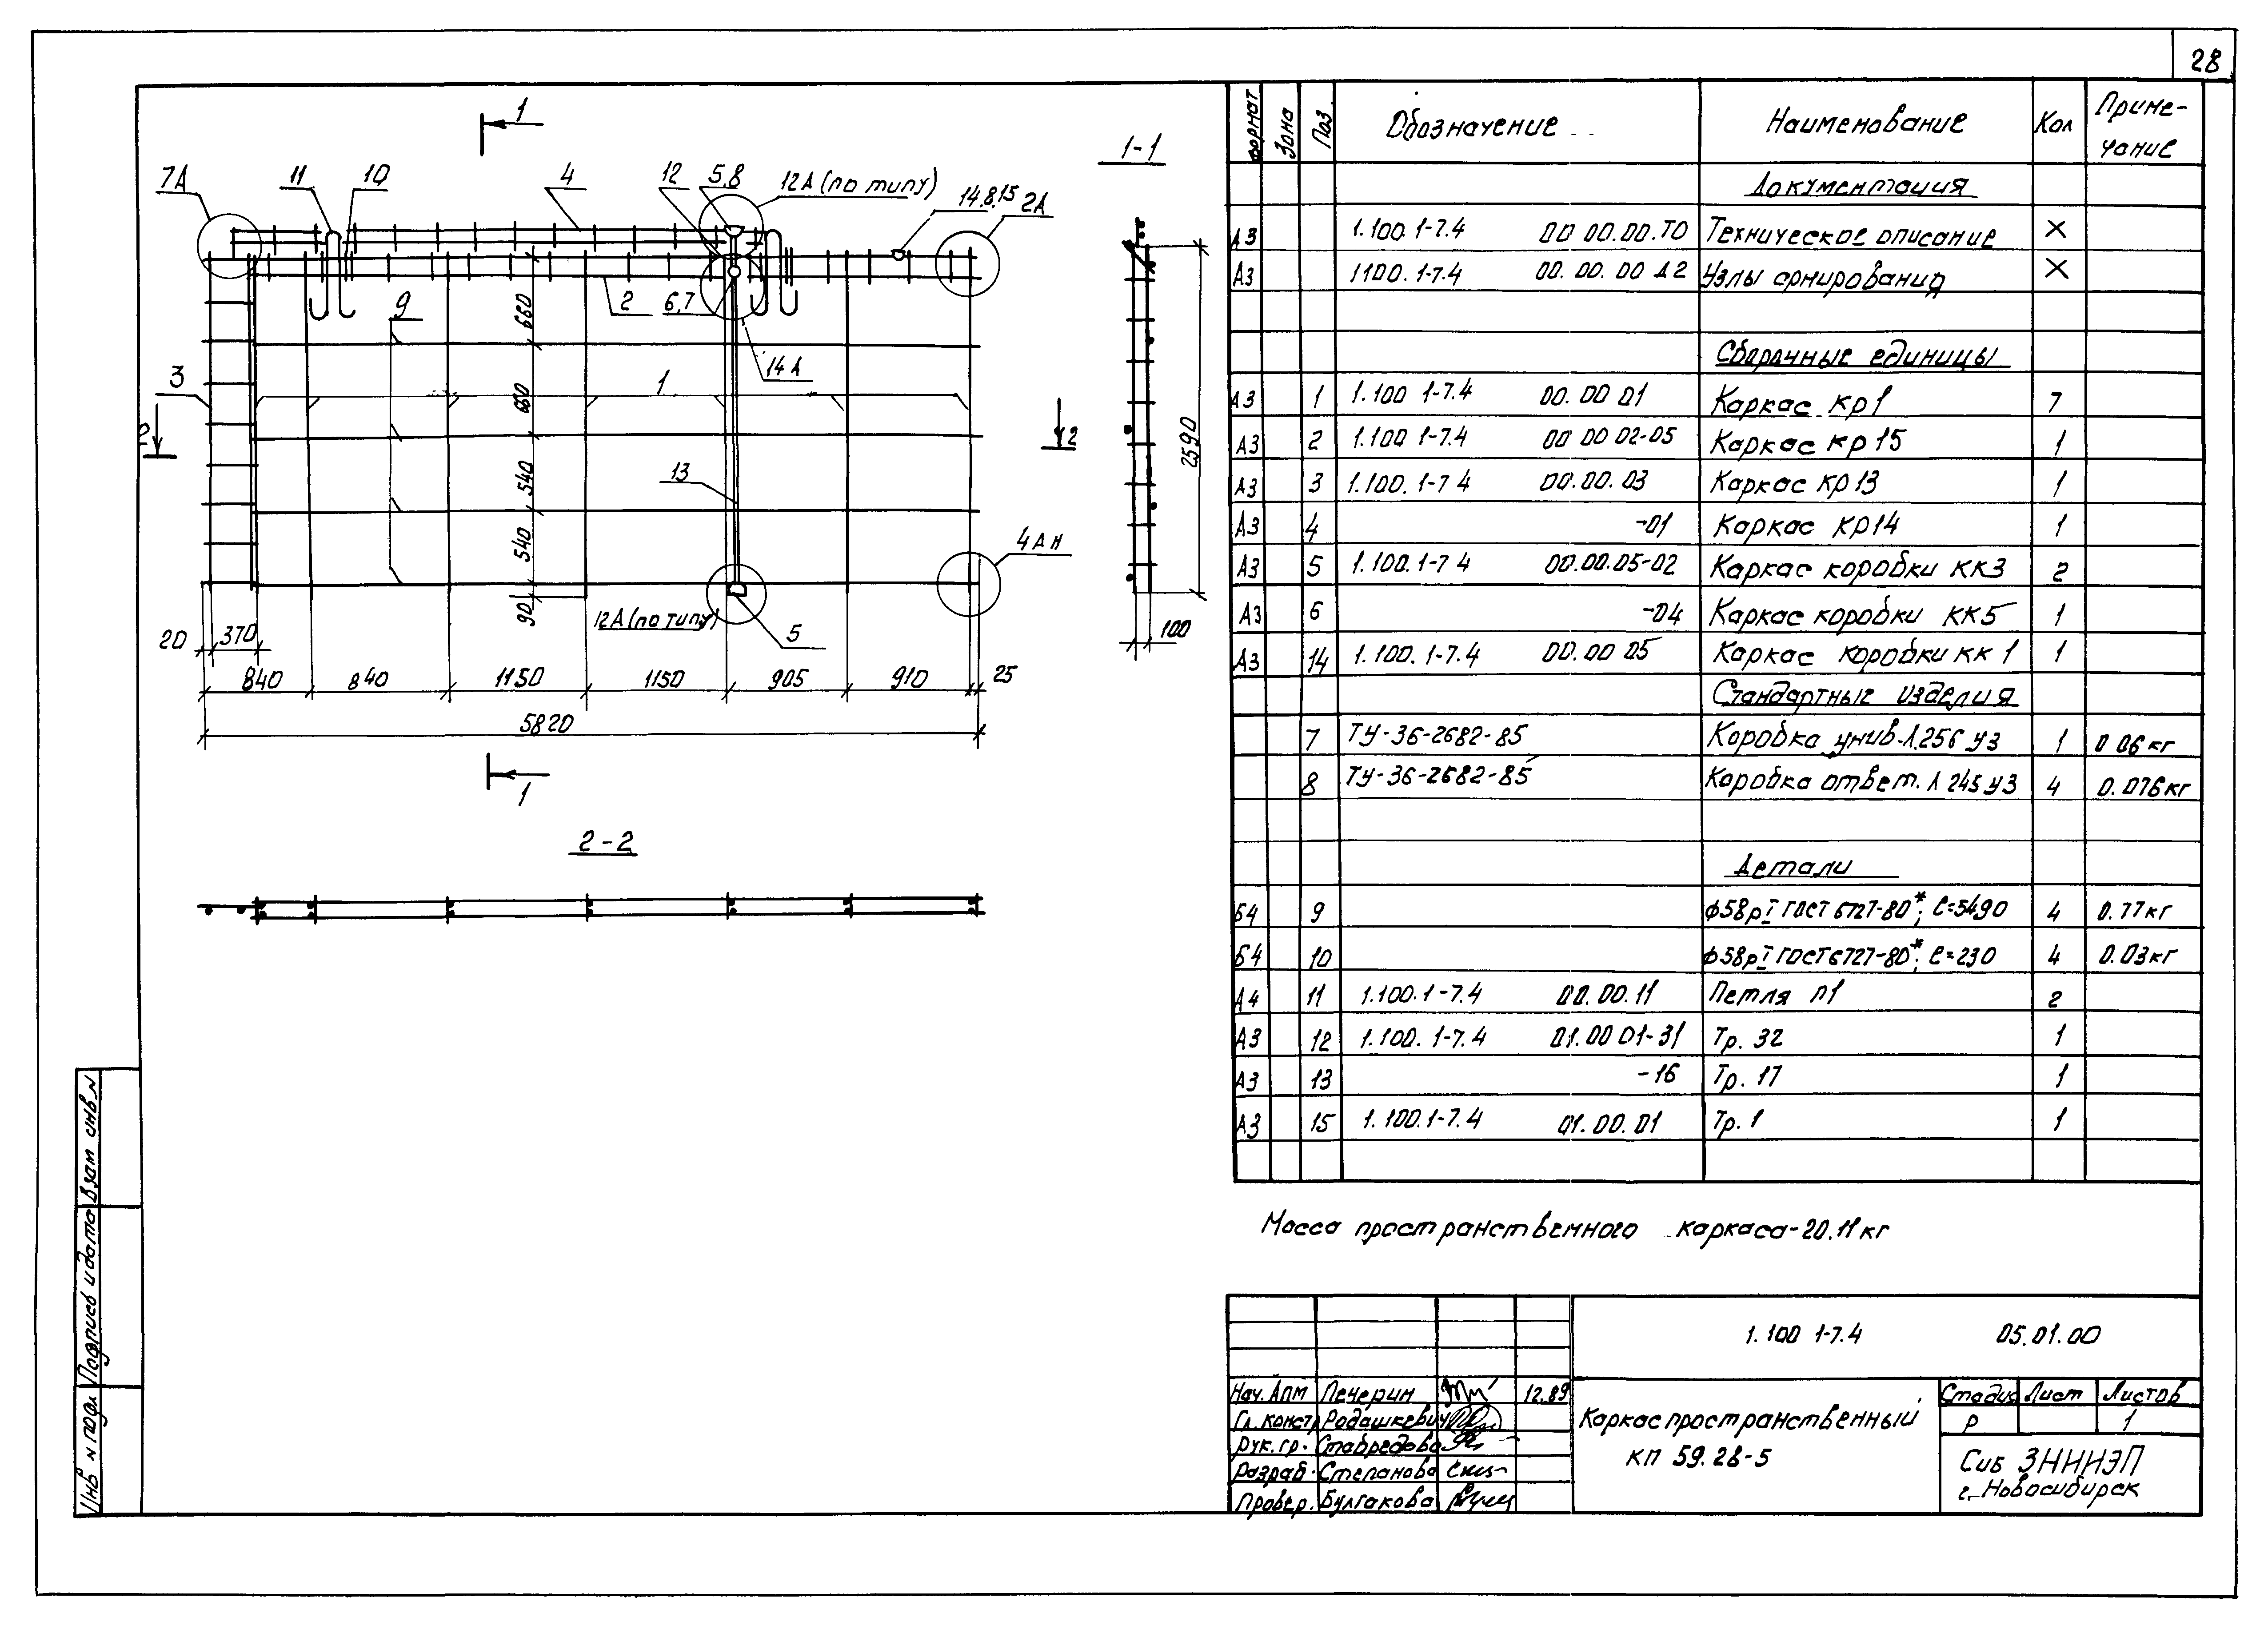 28
1
7А 11 10 4 12 5,8 12А (по типу) 14.8,15 2А
2 6,7 14А
9
3 1
2 2
13
4АН
12А (по типу) 5
660
660
540
540
90
20 370
840 840 1150 1150 905 910 25
5820
1
1-1
2590
100
2-2
Формат Зона Поз. Обозначение Наименование Кол Приме-
чание
Документация
А3 1.100.1-7.4 00.00.00.ТО Техническое описание X
А3 1100.1-7.4 00.00.00 Д2 Узлы армирования X
Сборочные единицы
А3 1 1.100 1-7.4 00.00 01 Каркас кр1 7
А3 2 1.100 1-7.4 00 00 02-05 Каркас кр15 1
А3 3 1.100.1-7 4 00.00.03 Каркас кр13 1
А3 4 -01 Каркас кр14 1
А3 5 1.100.1-7 4 00.00.05-02 Каркас коробки кк3 2
А3 6 -04 Каркас коробки кк5 1
А3 14 1.100.1-7.4 00.00 05 Каркас коробки кк 1 1
Стандартные изделия
7 ТУ-36-2682-85 Коробка унив.Л.256 У3 1 0 06кг
8 ТУ-36-2682-85 Коробка ответ. Л 245 У3 4 0.076кг
Детали
Б4 9 ф58рI ГОСТ 6727-80*; ℓ=5490 4 0.77кг
Б4 10 ф58рI ГОСТ6727-80*; ℓ=230 4 0.03кг
А4 11 1.100.1-7.4 00.00.11 Петля п1 2
А3 12 1.100.1-7.4 01.00 01-31 Тр. 32 1
А3 13 -16 Тр. 17 1
А3 15 1.100.1-7.4 01.00.01 Тр. 1 1
Масса пространственного каркаса-20.11кг
1.100 1-7.4 05.01.00
Нач. АПМ Печерин 12.89
Гл. констр Родашкевич
Рук. гр. Ставредова
Разраб. Степанова
Провер. Булгакова
Каркас пространственный
КП 59.28-5
Стадия Лист Листов
Р 1
Сиб ЗНИИЭП
г. Новосибирск
Инв N подл Подпись и дата Взам инв N